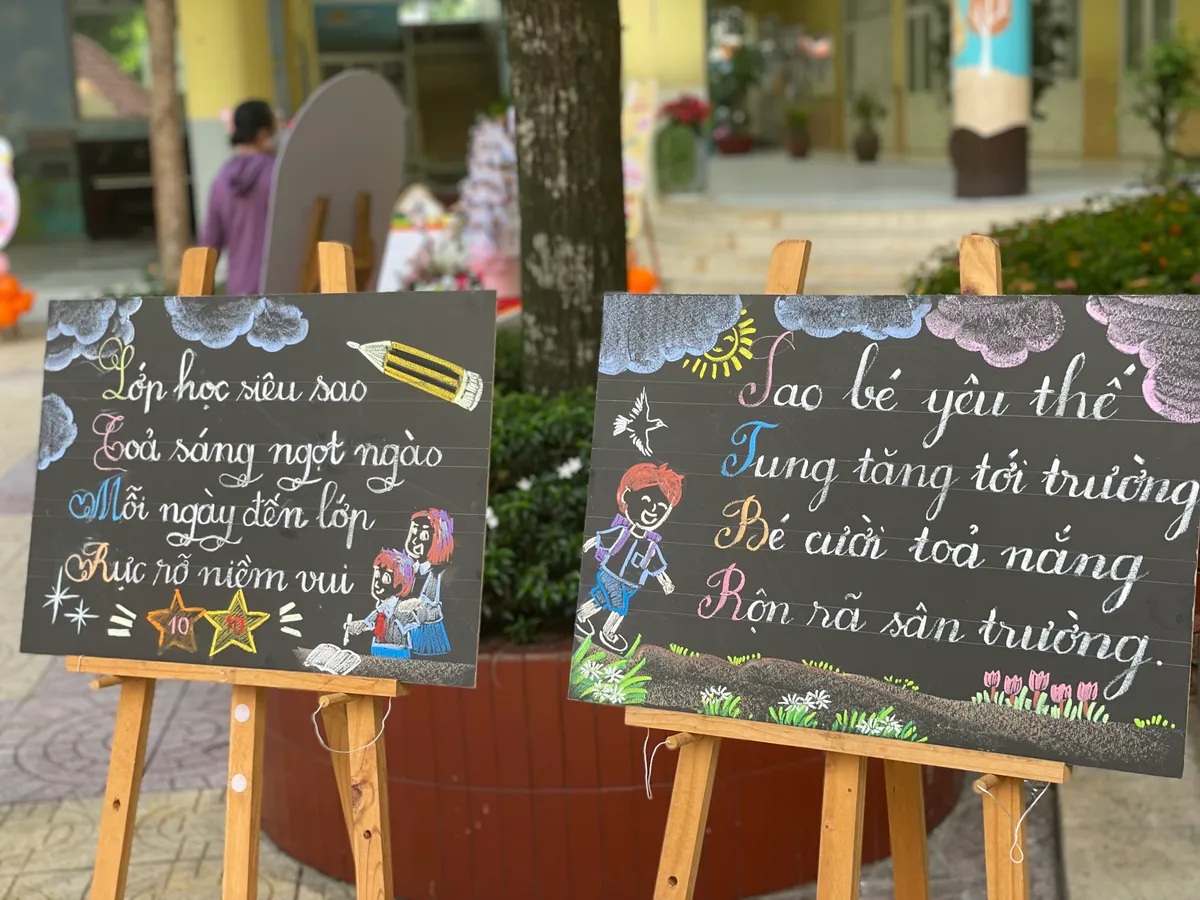 Lớp học siêu sao
Toả sáng ngọt ngào
Mỗi ngày đến lớp
Rực rỡ niềm vui
10 10
Sao bé yêu thế
Tung tăng tới trường
Bé cười toả nắng
Rộn rã sân trường.